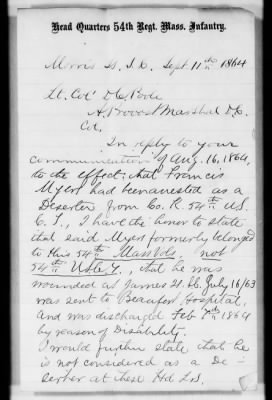 Head Quarters 54th Regt. Mass. Infantry.
Morris Is. S.C. Sept 11th 1864
Lt. Col.
A. Provost Marshal D.C.
Col,
In reply to your
communication of Aug. 16, 1864,
to the effect, that Francis
Myers had been arrested as a
Deserter from Co. K. 54th U.S.
C.T., I have the honor to state
that said Myers formerly belonged
to this 54th Mass Vols, not
54th , that he was
wounded at James Is. July 16/63
was sent to Beaufort Hospital,
and was discharged Feb 7th 1864
by reason of Disability.
I would further state that he
is not considered as a De-
serter at these Hd Qrs.